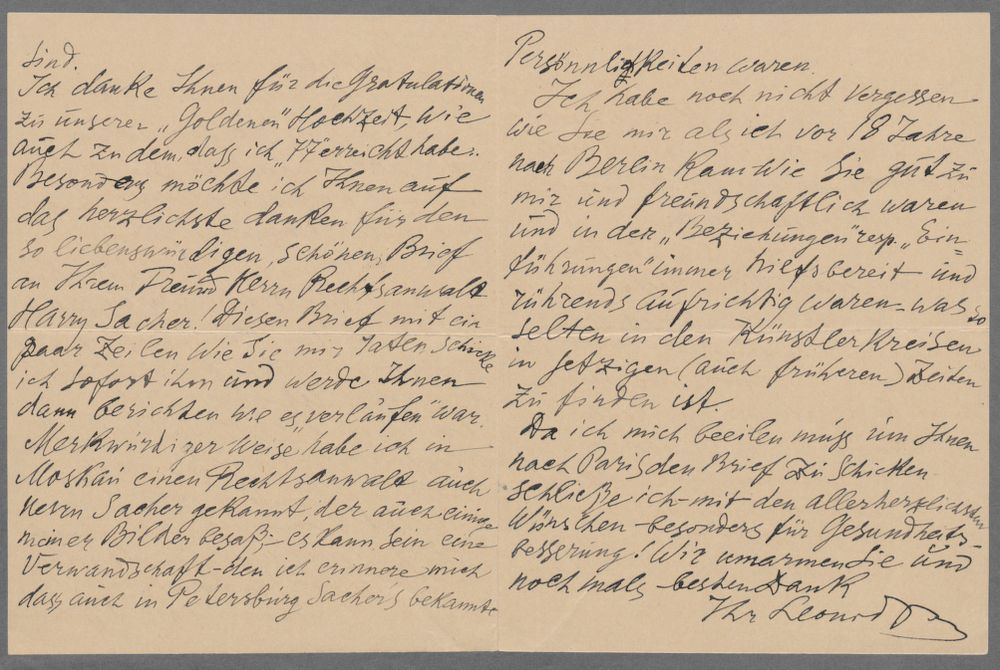 sind.
Ich danke Ihnen für die Gratulationen
zu unserer „Goldenen" Hochzeit, wie
auch zu dem, dass ich „77 erreicht habe".
Besonders möchte ich Ihnen auf
das herzlichste danken für den
so liebenswürdigen, schönen, Brief
an Ihrem Freund Herrn Rechtsanwalt
Harry Sacher! Diesen Brief mit ein
paar Zeilen wie Sie mir raten schicke
ich sofort ihm und werde Ihnen
dann berichten wie es „verläufen" war.
Merkwürdizer Weise, habe ich in
Moskau einen Rechtsanwalt auch
Herrn Sacher gekannt, der auch einige
meiner Bilder besaß; – es kann sein eine
Verwandschaft – den ich erinnere mich
dass auch in Petersburg Sachers bekannte
Persönnligkeiten waren
Ich habe noch nicht vergessen
wie Sie mir als ich vor 18 Jahre
nach Berlin kam wie Sie gut zu
mir und freundschaftlich waren
und in der „Beziehungen" resp. „Ein=
führungen" immer hilfsbereit und
rührends aufrichtig waren – was so
selten in den Künstlerkreisen
in jetzigen (auch früheren) Zeiten
zu finden ist.
Da ich mich beeilen muss um Ihnen
nach Paris den Brief zu schicken
schließe ich – mit den allerherzlichsten
Wünschen – besonders für Gesundheits-
besserung! Wir umarmen Sie und
nochmals besten Dank
Ihr Leonid